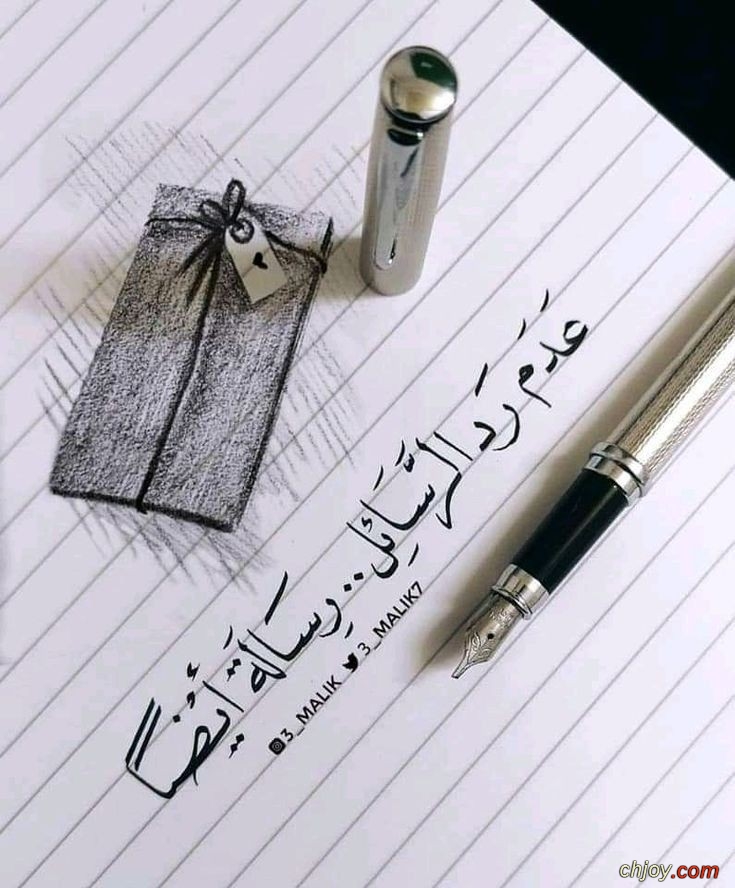 عَدَم رَد الرَّسَائِل.. رِسَالَة أَيْضاً
3_MALIK 3_MALIK7
chjoy.com